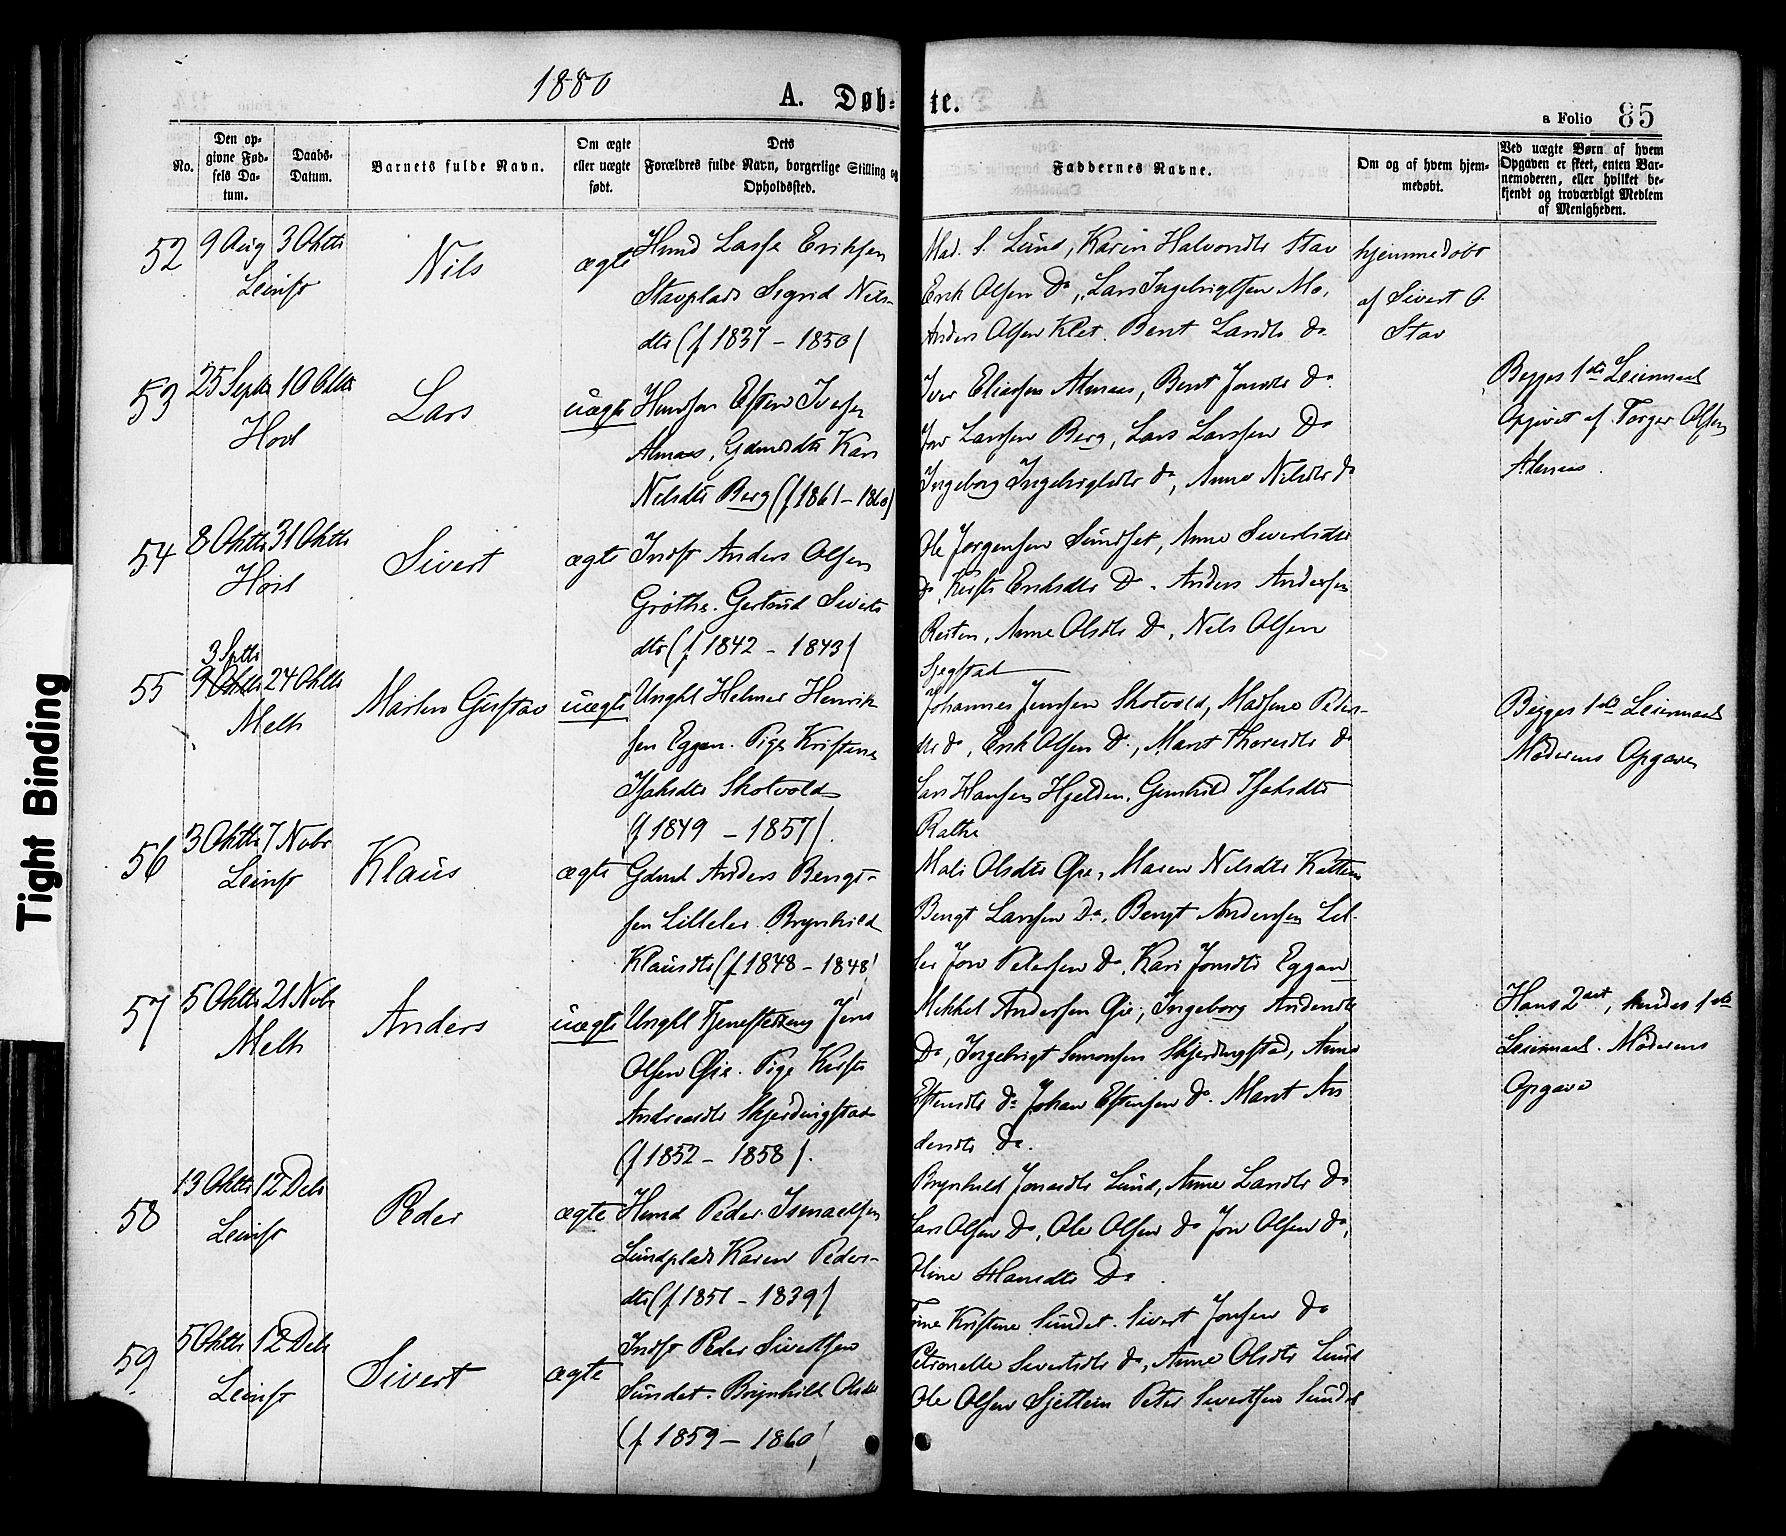 1880
A. Døb-te.
a Folio 85
No.
Den op-
givne Fød-
sels Da-
tum.
Daabs-
Datum.
Barnets fulde Navn.
Om ægte
eller uægte
født.
Dets
Forældres fulde Navn, borgerlige Stilling og
Opholdssted.
Faddernes Navne.
Om og af hvem hjem-
medøbt.
Ved uægte Børn af hvem
Opgaven er skeet, enten Bar-
nemoderen, eller hvilket be-
kjendt og troværdigt Medlem
af Menigheden.
52
9 Aug 3 Oktb
Leinst
Nils
ægte
Husmd Lasse Eriksen
Stavplads Sigrid Nils-
dtr (f 1837 - 1850)
Mad. S. Lund, Karen Halvorsdtr Stav
Erik Olsen Do, Lars Ingebrigtsen Mo,
Anders Olsen Klet. Berit Larsdtr Do
hjemmedøbt
af Sivert O.
Stav
53
25 Septb 10 Oktb
Horl
Lars
uægte
Esten Ivers
Almaas, Gdmdsdtr Kari
Nilsdtr Berg (f 1861 - 1860)
Iver Eliasen Almaas, Berit Jonsdtr Do
Larsen Berg, Lars Larsen Do
Ingeborg Ingebrigtsdtr Do, Anne Nilsdtr Do
Begges 1ste Leiermaal
Opgivet af Torger Olsen
Almaas.
54
8 Oktb 31 Oktb
Sivert
ægte
Indst Anders Olsen
Grøthe. Gertrud Siverts
dtr (f 1842 - 1843)
Ole Jørgensen Sundset, Anne Sivertsdtr
Do, Eriksdtr Do. Anders Andersen
Anne Olsdtr Do, Nils Olsen
55
3 Septb
9 Oktb 24 Oktb
Melh
Marten Gustav
uægte
Ungkl Helmer Henrik
sen Eggen. Pige Kristine
Isaksdtr Skotvold
(f 1849 - 1857).
Johannes Jensen Skotvold, Peders-
dtr Do, Erik Olsen Do, Marit Do
Lars Hansen Hjelden, Gunhild Isaksdtr
Begges 1ste Leiermaal
Moderens Opgave
56
3 Oktb 7 Nobr
Leinst
Klaus
ægte
Gdmd Anders Bengt-
sen Lilleler. Brynhild
Klausdtr (f 1848 - 1848)
Mali Olsdtr Øie, Maren Nilsdtr
Bengt Larsen Do, Bengt Andersen Lil-
ler Jon Petersen Do, Kari Jonsdtr Eggen
57
5 Oktb 21 Nobr
Melh
Anders
uægte
Ungkl Tjenestedreng Jens
Olsen Øie. Pige
Andersdtr Skjerdingstad
(f 1852 - 1858).
Mikkel Andersen Øie, Ingeborg Andersdtr
Do, Ingebrigt Simonsen Skjerdingstad, Anne
Estensdtr Do Johan Estensen Do. Marit An
dersdtr Do.
Hans 2det, hendes 1ste
Leiermaal. Moderens
Opgave
58
13 Oktb 12 Deb
Leinst
Peder
ægte
Husmd Peder Ismaelsen
Lundplads Karen Peders-
dtr (f 1851 - 1839)
Brynhild Jonsdtr Lund, Anne Larsdtr Do
Lars Olsen Do, Ole Olsen Do Jon Olsen Do,
Oline Hansdtr Do.
59
5 Oktb 12 Deb
Leinst
Sivert
ægte
Indst Peder Sivertsen
Sundet. Brynhild Olsdtr
(f 1859 - 1860)
Kristine Sundet. Sivert Jonsen Do
Petronelle Sivertsdtr Do, Anne Olsdtr Lund
Ole Olsen Sjetlein Peter Sivertsen Sundet
Tight Binding